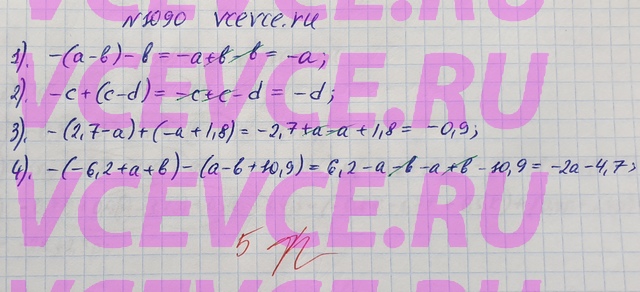 №1090 vcevce.ru
1). -(a-b)-b = -a+b-b = -a;
2). -c+(c-d) = -c+c-d = -d;
3). -(2,7-a)+(-a+1,8) = -2,7+a-a+1,8 = -0,9;
4). -(-6,2+a+b)-(a-b+10,9) = 6,2-a-b-a+b-10,9 = -2a-4,7;
5
VCEVCE.RU
VCEVCE.RU
VCEVCE.RU